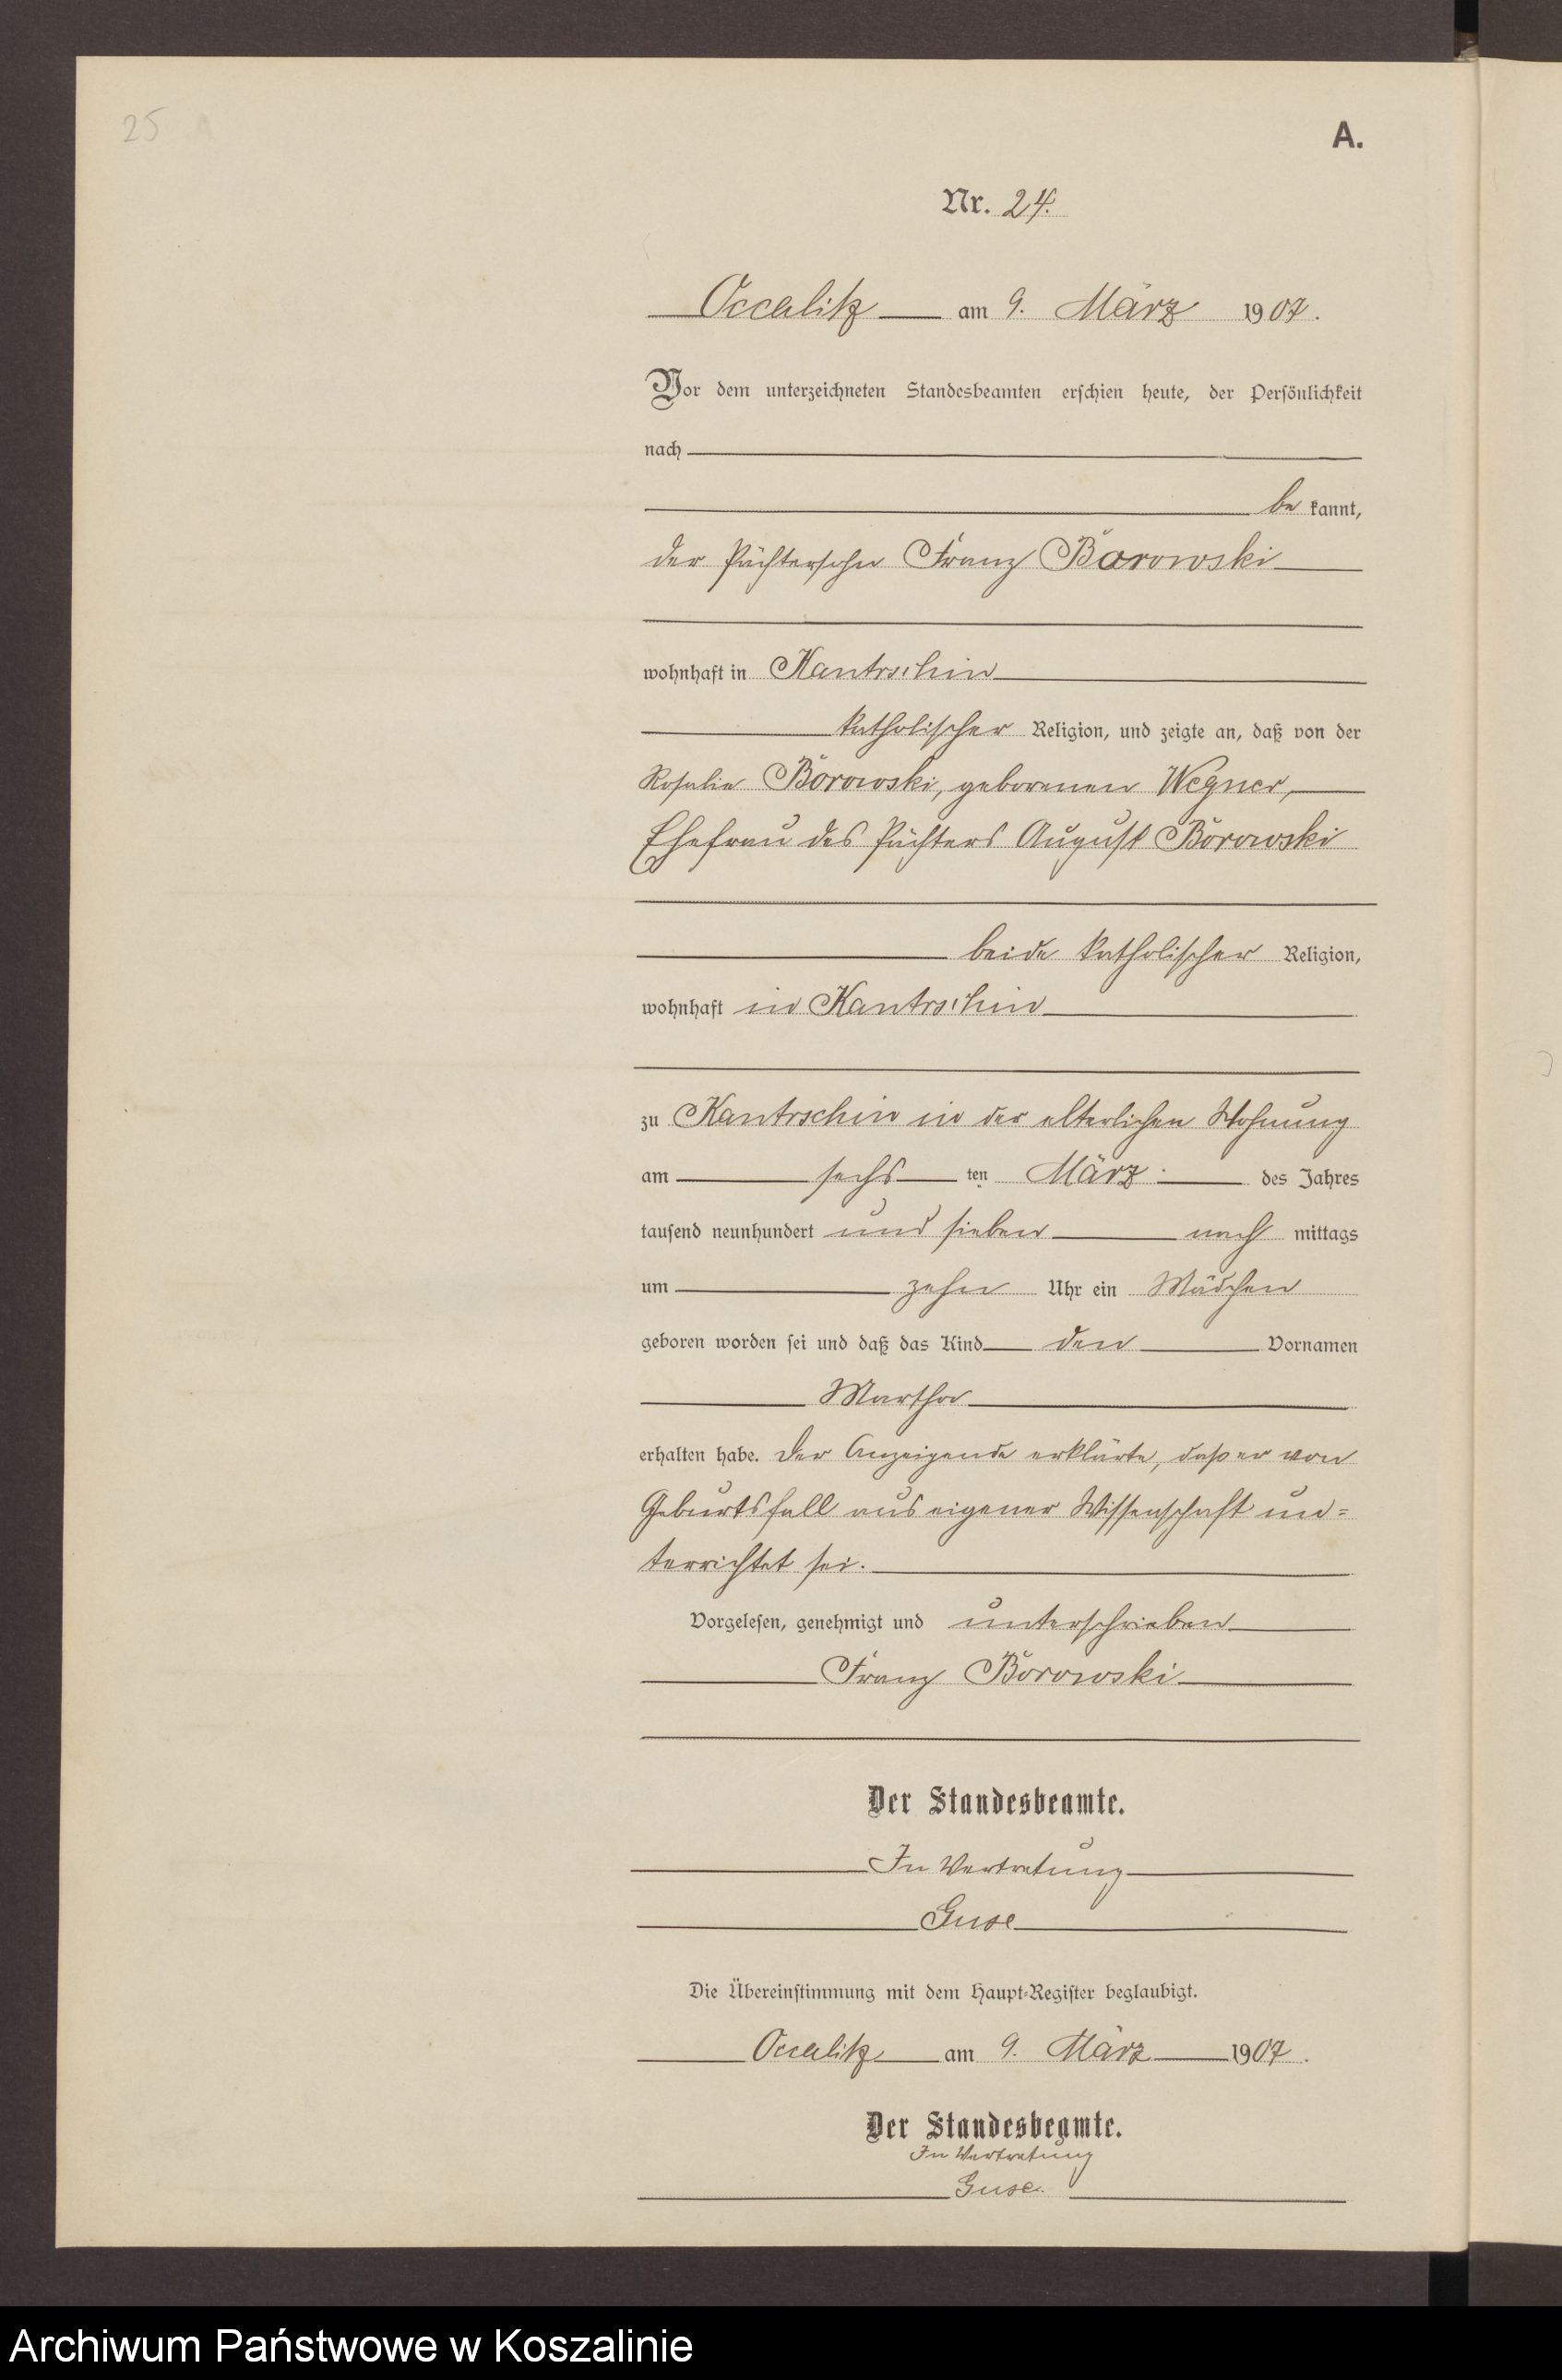 25
A.
Nr. 24.
Occalitz am 9. März 1907.
Vor dem unterzeichneten Standesbeamten erschien heute, der Persönlichkeit
nach
be kannt,
der Pächtersohn Franz Borowski
wohnhaft in Kantrschin
katholischer Religion, und zeigte an, daß von der
Rosalie Borowski, geborenen Wegner,
Ehefrau des Pächters August Borowski
beide katholischer Religion,
wohnhaft in Kantrschin
zu Kantrschin in der elterlichen Wohnung
am sechs ten März des Jahres
tausend neunhundert und sieben nach mittags
um zehn Uhr ein Mädchen
geboren worden sei und daß das Kind den Vornamen
Martha
erhalten habe. Der Anzeigende erklärte, daß er von
Geburtsfall aus eigener Wissenschaft un=
terrichtet sei.
Vorgelesen, genehmigt und unterschrieben
Franz Borowski
Der Standesbeamte.
In Vertretung
Guse
Die Übereinstimmung mit dem Haupt-Register beglaubigt.
Occalitz am 9. März 1907.
Der Standesbeamte.
In Vertretung
Guse.
Archiwum Państwowe w Koszalinie